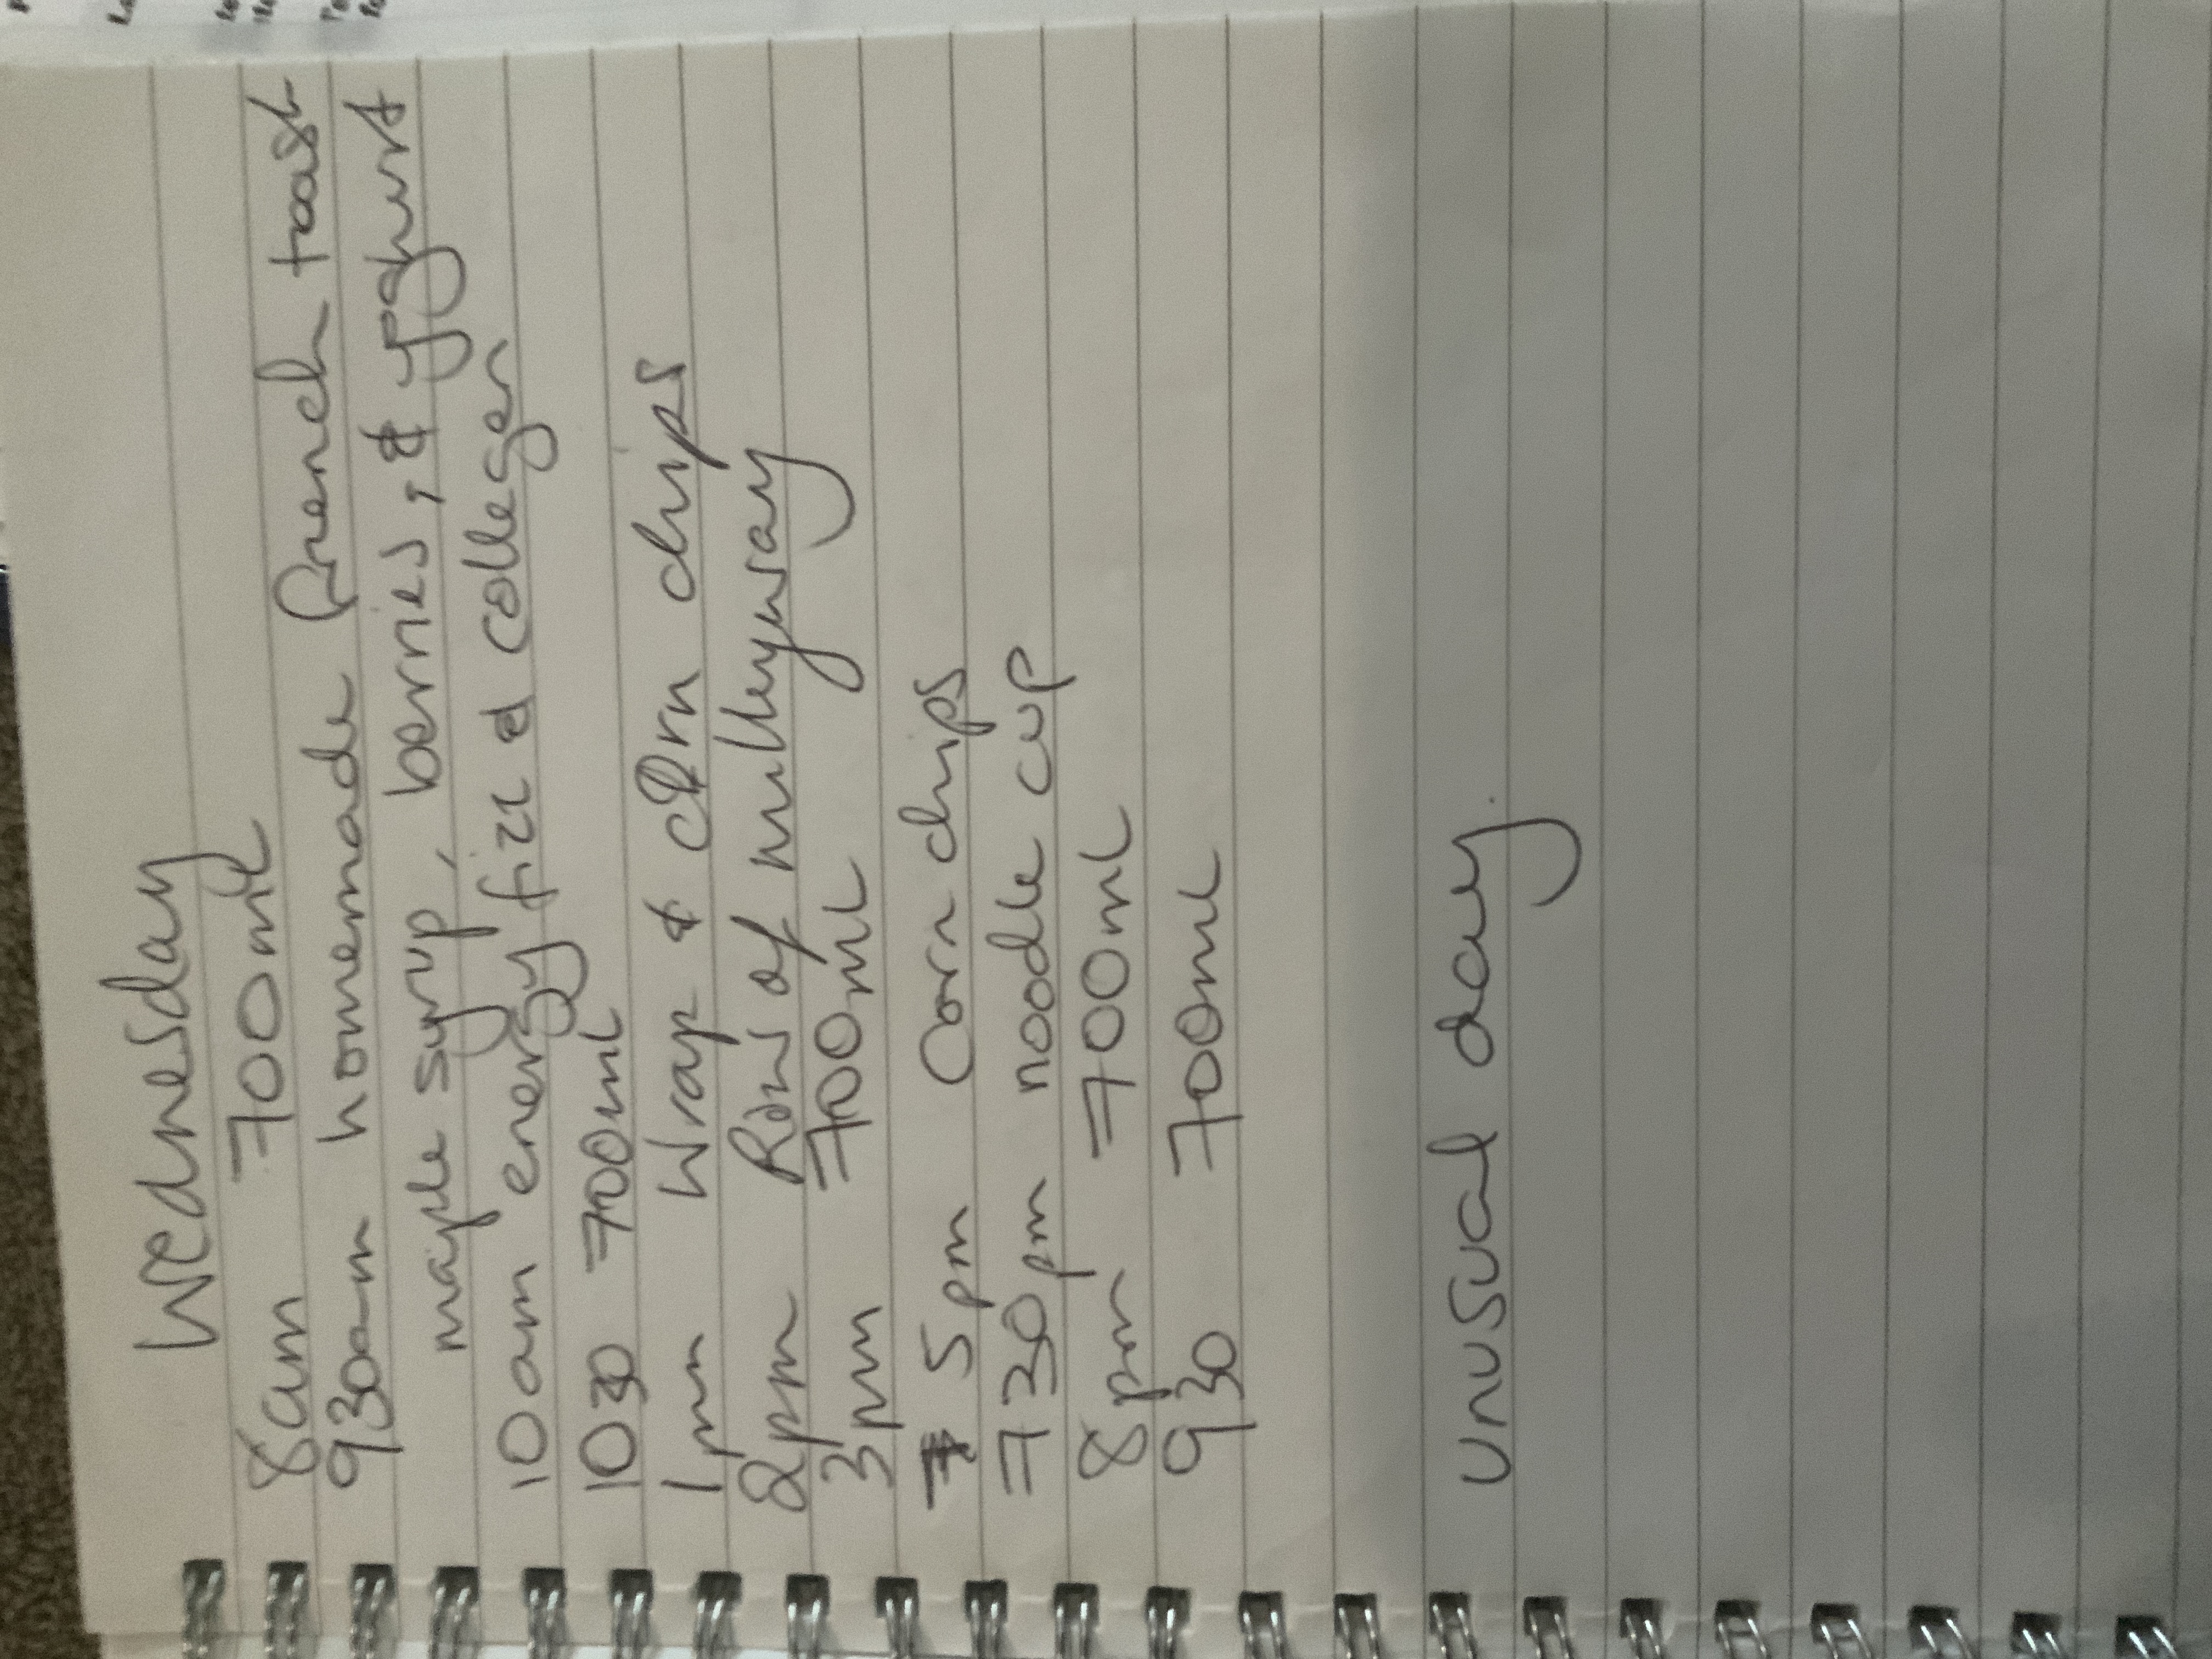 Wednesday
8am 700ml
930am homemade french toast
maple syrup, berries, & yoghurt
10am energy fizz & collegen
1030 700ml
1pm Wrap & corn chips
2pm Row of milkyway
3pm 700ml
5pm Corn chips
730pm noodle cup
8pm 700ml
930 700ml
unusual day